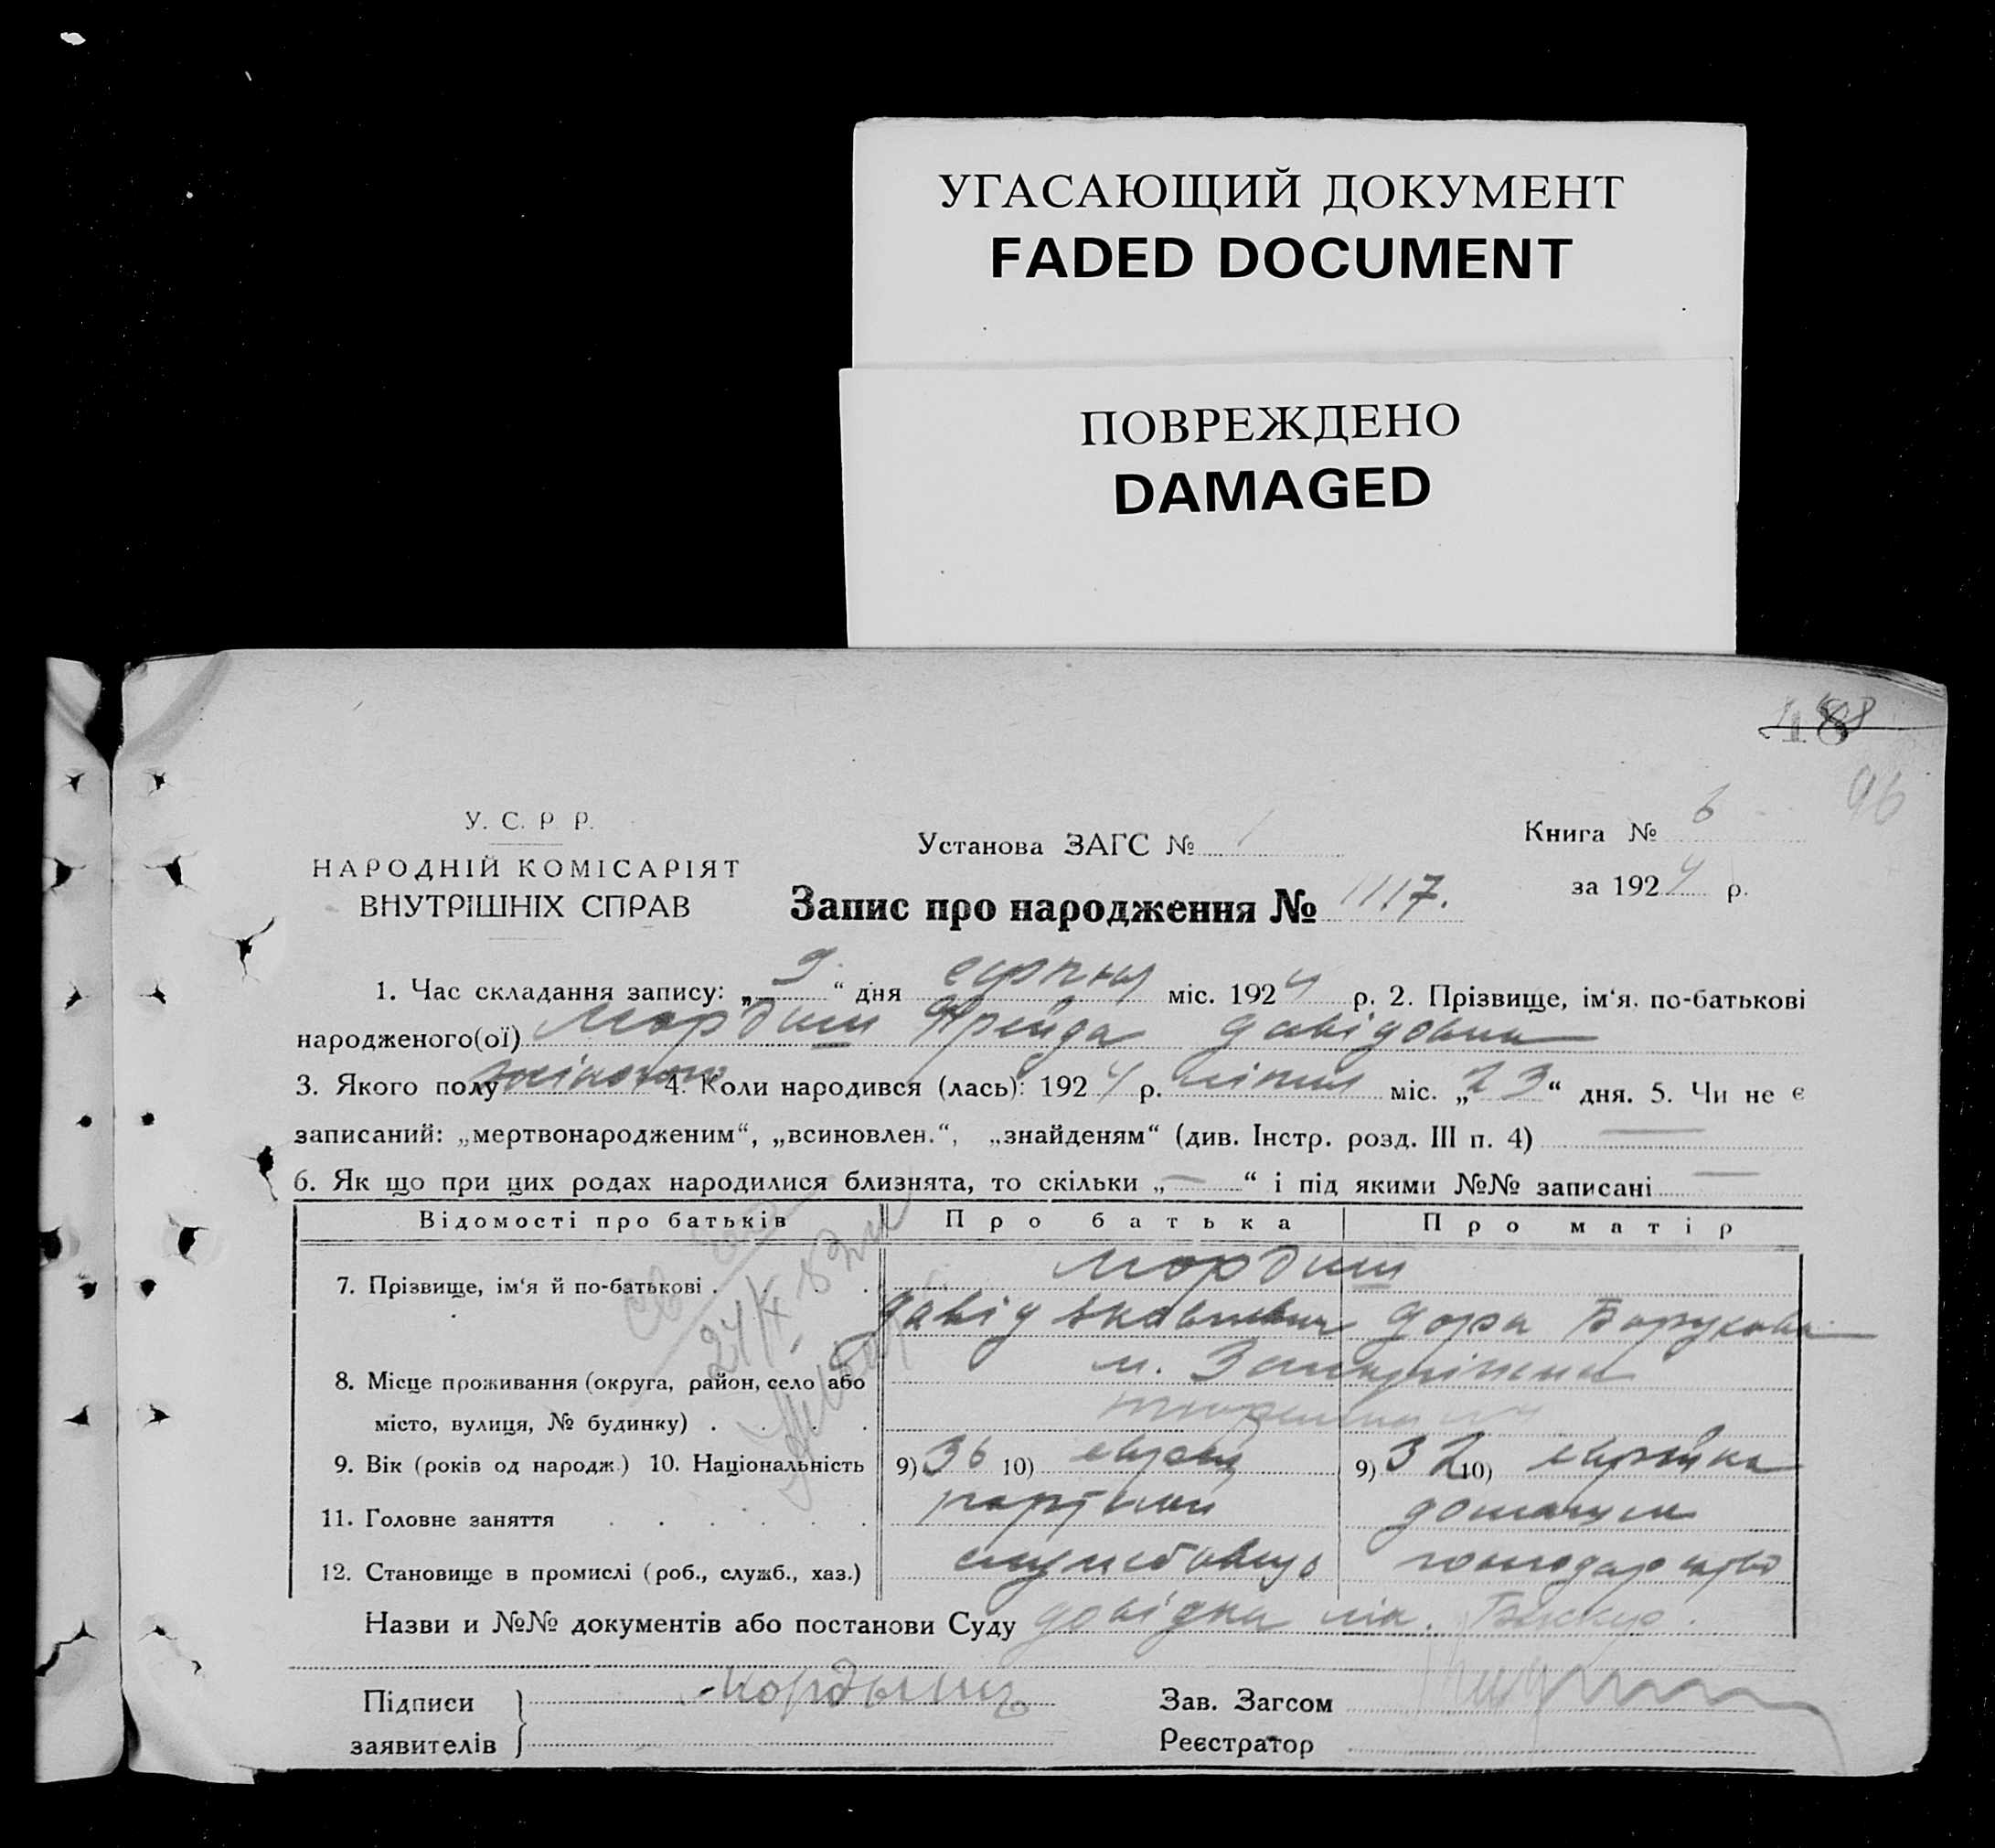 УГАСАЮЩИЙ ДОКУМЕНТ
FADED DOCUMENT
ПОВРЕЖДЕНО
DAMAGED
96
У. С. Р Р.
НАРОДНІЙ КОМІСАРІЯТ
ВНУТРІШНІХ СПРАВ
Установа ЗАГС № 1
Книга № 6
за 1924 р.
Запис про народження № 1117.
1. Час складання запису: „ 9 “ дня серпня міс. 1924 р. 2. Прізвище, ім‘я, по-батькові
народженого(ої) Мордиш Фрейда Давідовна
3. Якого полу жіночого 4. Коли народився (лась): 1924 р. липня міс. „23“ дня. 5. Чи не є
записаний: „мертвонародженим“, „всиновлен.“, „знайденям“ (див. Інстр. розд. III п. 4) —
6. Як що при цих родах народилися близнята, то скільки „—“ і під якими №№ записані —
Відомості про батьків Про батька Про матір
7. Прізвище, ім‘я й по-батькові . . . . Мордиш
Давід Дора Борухова
8. Місце проживання (округа, район, село або м.
місто, вулиця, № будинку) . . .
9. Вік (років од народж.) 10. Національність 9) 36 10) еврей 9) 32 10) еврейка
11. Головне заняття . . . . . . домашнє
12. Становище в промислі (роб., служб., хаз.) службовець господарство
Назви и №№ документів або постанови Суду довідка лік.
Підписи Мордыш Зав. Загсом
заявителів Реєстратор